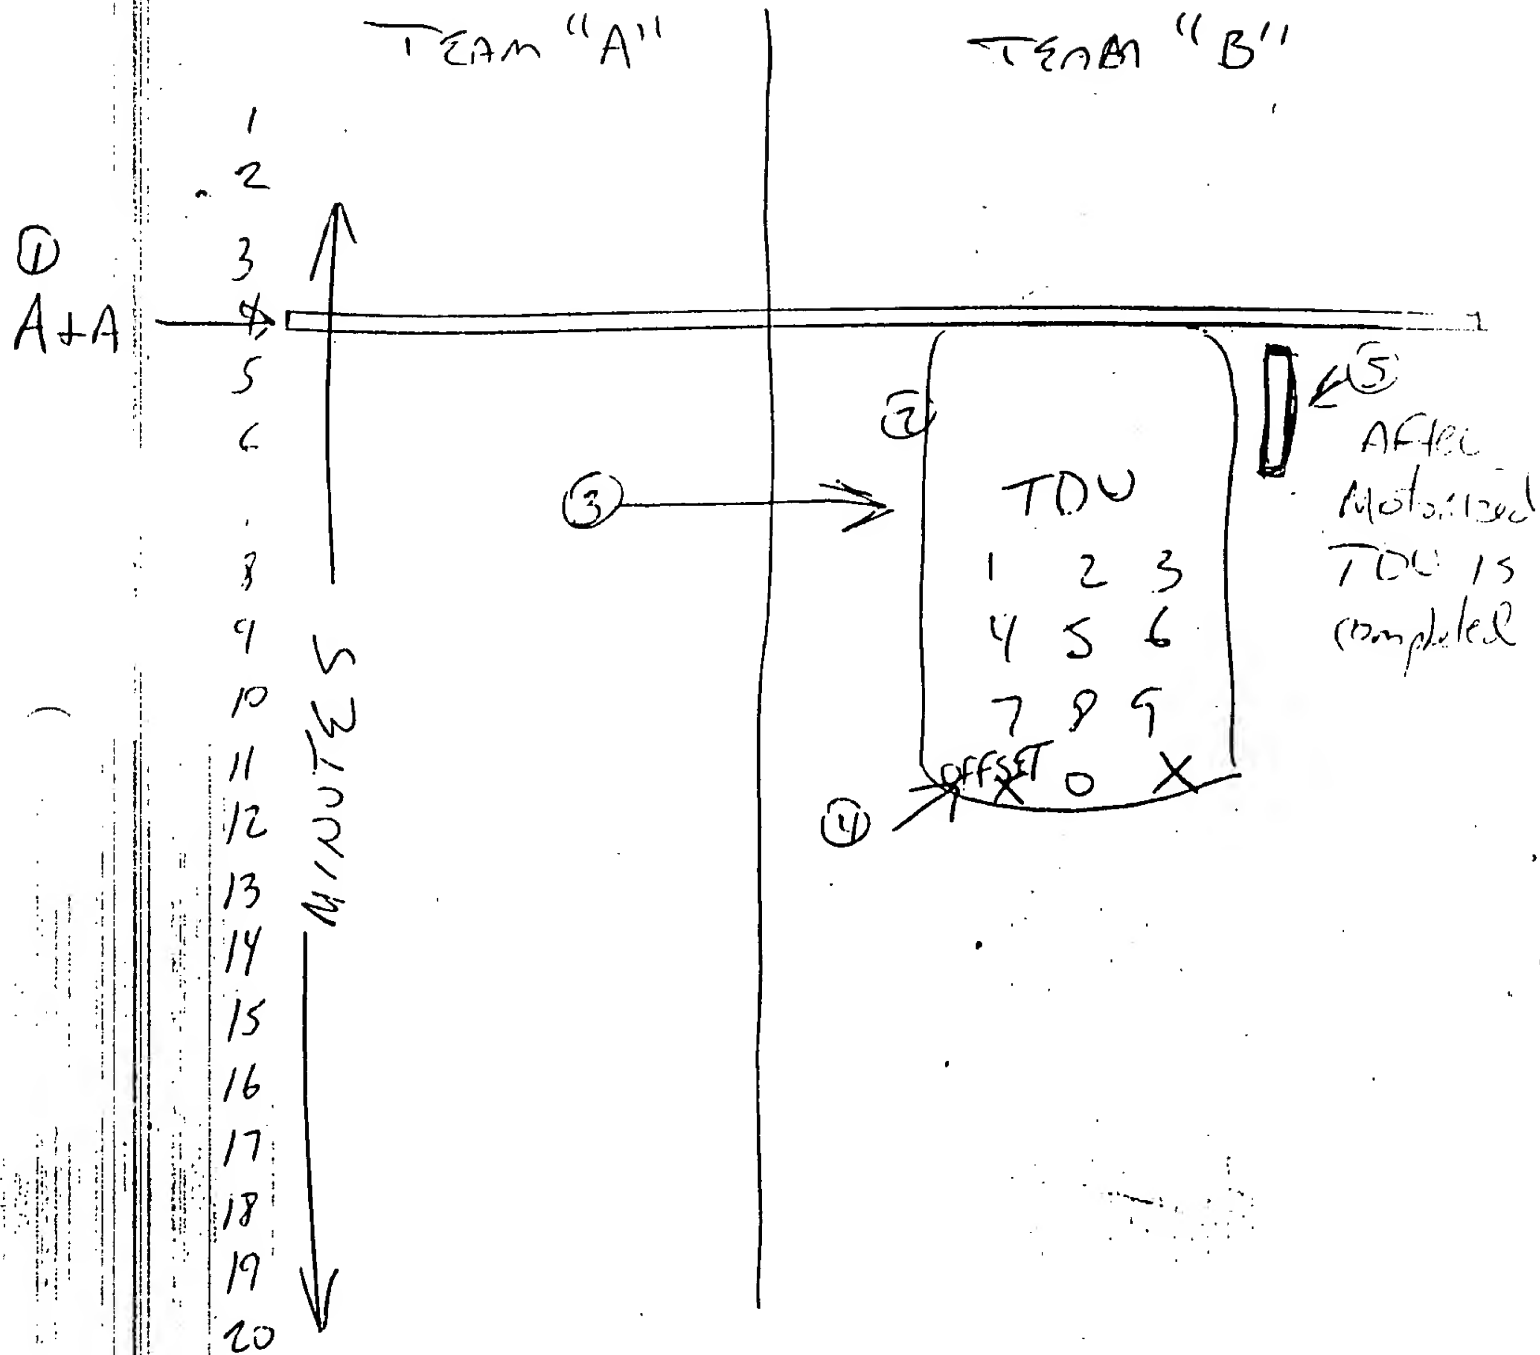 TEAM "A"
TEAM "B"
1
2
3
4
5
6
8
9
10
11
12
13
14
15
16
17
18
19
20
MINUTES
①
A+A
②
③
TDU
1 2 3
4 5 6
7 8 9
OFFSET
X 0 X
④
⑤
After
Motorized
TDU is
completed